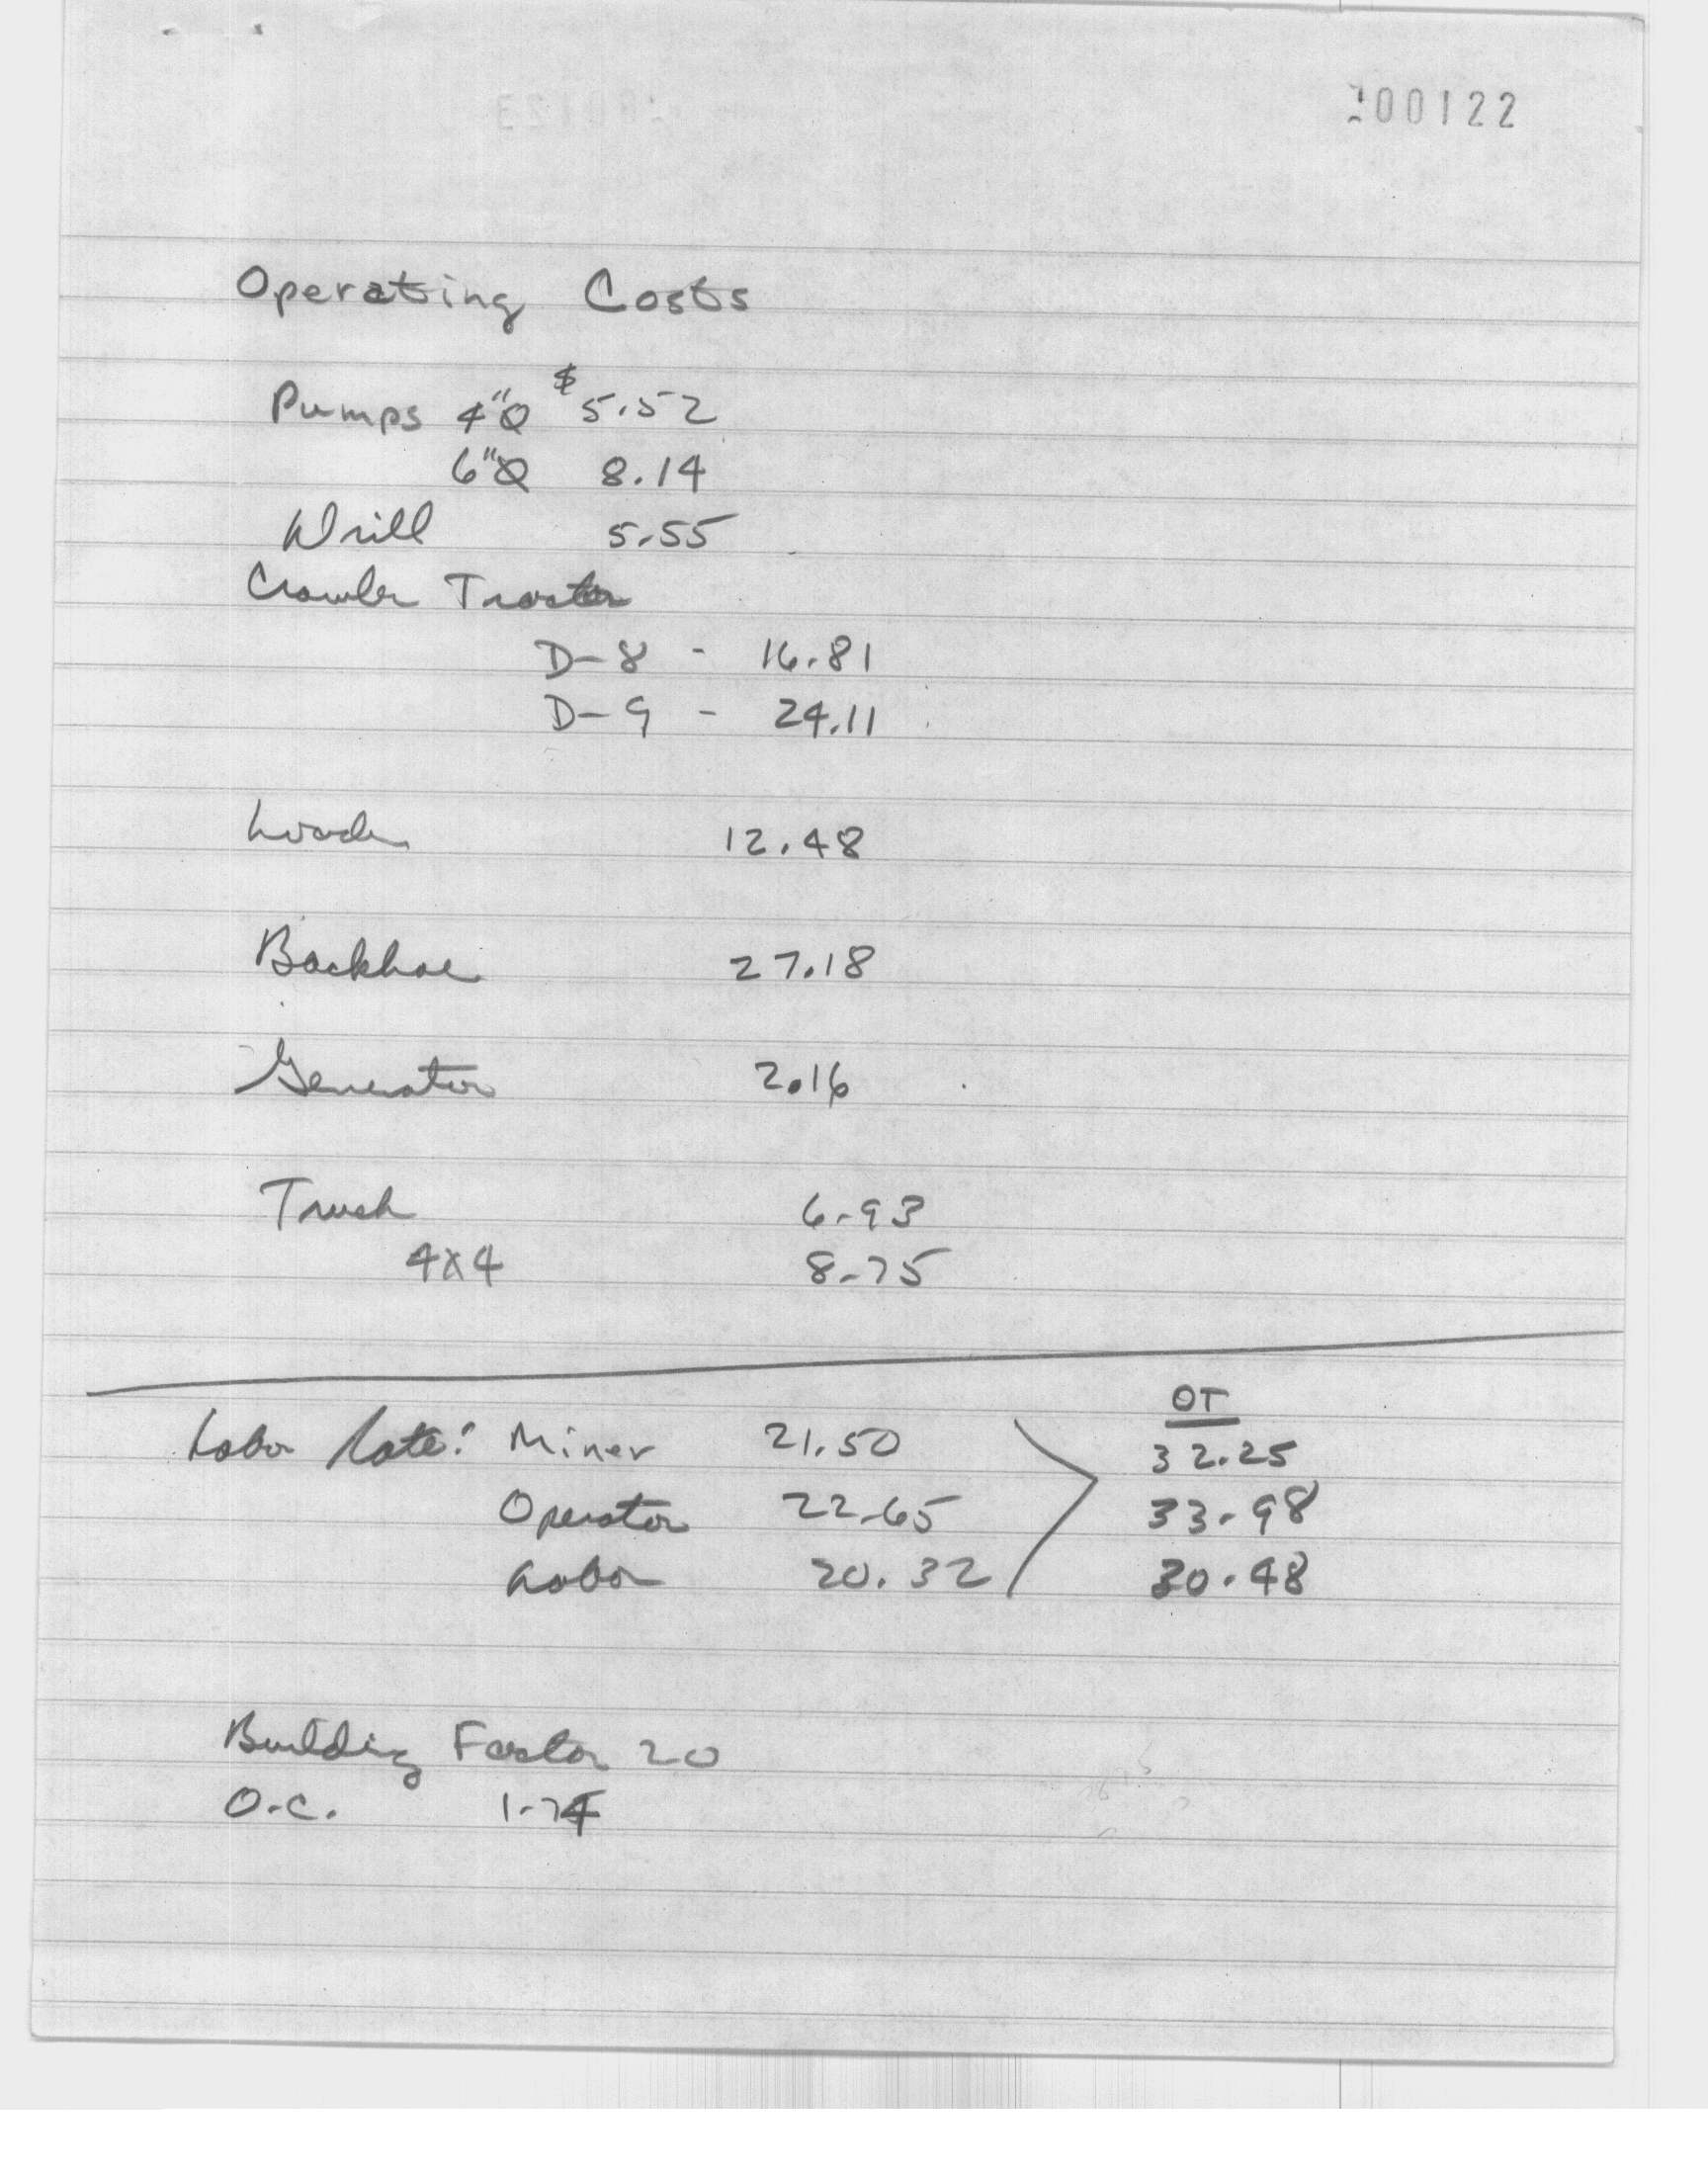 00122
Operating Costs
Pumps 4"Ø $5.52
6"Ø 8.14
Drill 5.55
Crawler Tractor
D-8 - 16.81
D-9 - 24.11
Loader 12.48
Backhoe 27.18
Generator 2.16
Truck 6.93
4x4 8.75
OT
Labor Rate: Miner 21.50 32.25
Operator 22.65 33.98
Labor 20.32 30.48
Building Factor 20
O.C. 1.74